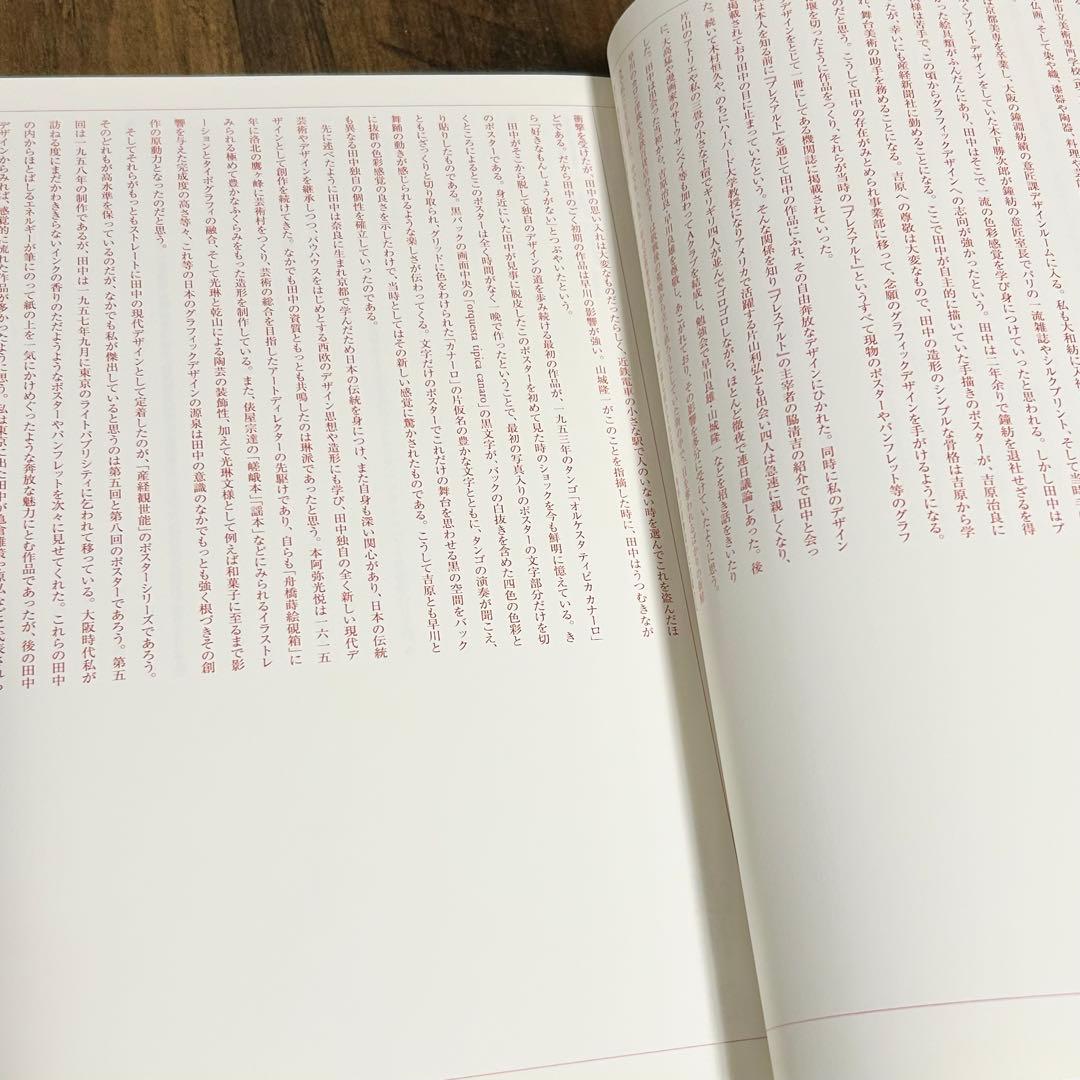 都市立美術専門学校(現
仏画、そして染や織、漆器や陶器、料理や芸
は京都美専を卒業し、大阪の鐘淵紡績の意匠課デザインルームに入る。私も大和紡に入社
くプリントデザインをしていた木下勝次郎が鐘紡の意匠室長でパリの一流雑誌やシルクプリント、そして当時
かった絵具類がふんだんにあり、田中はそこで一流の色彩感覚を学び身につけていったと思われる。しかし田中はプ
様は苦手で、この頃からグラフィックデザインへの志向が強かったという。田中は二年余りで鐘紡を退社せざるを得
たが、幸いにも産経新聞社に勤めることになる。ここで田中が自主的に描いていた手描きのポスターが、吉原治良に
れ、舞台美術の助手を務めることになる。吉原への尊敬は大変なもので、田中の造形のシンプルな骨格は吉原から学
のだと思う。こうして田中の存在がみとめられ事業部に移って、念願のグラフィックデザインを手がけるようになる。
堰を切ったように作品をつくり、それらが当時の『プレスアルト』というすべて現物のポスターやパンフレット等のグラフ
デザインをとじて一冊にしてある機関誌に掲載されていった。
は本人を知る前に『プレスアルト』を通じて田中の作品にふれ、その自由奔放なデザインにひかれた。同時に私のデザイン
掲載されており田中の目に止まっていたという。そんな関係を知り『プレスアルト』の主宰者の脇清吉の紹介で田中と会っ
た。続いて木村恒久や、のちにハーバード大学教授になりアメリカで活躍する片山利弘とも出会い四人は急速に親しくなり、
片山のアトリエや私の二畳の小さな下宿でギリギリ四人が並んでゴロゴロしながら、ほとんど徹夜で連日議論しあった。後
に、大西猛や漫画家のサトウサンペイ等も加わりAクラブを結成し、勉強会で早川良雄、山城隆一などを招き話をきいたり
した。田中は出会った当初から、吉原治良、早川良雄を尊敬し、あこがれており、その影響を多分に受けていたように思う。
衝撃を受けたが、田中の思い入れは大変なものだったらしく、近鉄電車の小さな駅で人のいない時を選んでこれを盗んだほ
どである。だから田中のごく初期の作品は早川の影響が強い。山城隆一がこのことを指摘した時に、田中はうつむきなが
ら「好きなもんしょうがない」とつぶやいたという。
田中がそこから脱して独自のデザインの道を歩み続ける最初の作品が、一九五三年のタンゴ「オルケスタ ティピカ カナーロ」
のポスターである。身近にいた田中が見事に脱皮したこのポスターを初めて見た時のショックを今も鮮明に憶えている。き
くところによるとこのポスターは全く時間がなく、一晩で作ったということで、最初の写真入りのポスターの文字部分だけを切
り貼したものである。黒バックの画面中央の「orquesta tipica canaro」の黒文字が、バックの白抜きを含めた四色の色彩と
ともにざっくりと切り取られ、グリッドに色をわけられた「カナーロ」の片仮名の豊かな文字とともに、タンゴの演奏が聞こえ、
舞踊の動きが感じられるような楽しさが伝わってくる。文字だけのポスターでこれだけの舞台を思わせる黒の空間をバック
に抜群の色彩感覚の良さを示したわけで、当時としてはその新しい感覚に驚かされたものである。こうして吉原とも早川と
も異なる田中独自の個性を確立していったのである。
先に述べたように田中は奈良に生まれ京都で学んだため日本の伝統を身につけ、また自身も深い関心があり、日本の伝統
芸術やデザインを継承しつつ、バウハウスをはじめとする西欧のデザイン思想や造形にも学び、田中独自の全く新しい現代デ
ザインとして創作を続けてきた。なかでも田中の資質ともっとも共鳴したのは琳派であったと思う。本阿弥光悦は一六一五
年に洛北の鷹ヶ峰に芸術村をつくり、芸術の総合を目指したアートディレクターの先駆けであり、自らも「舟橋蒔絵硯箱」に
みられる極めて豊かなふくらみをもった造形を制作している。また、俵屋宗達の「嵯峨本」「謡本」などにみられるイラストレ
ーションとタイポグラフィの融合、そして光琳と乾山による陶芸の装飾性、加えて光琳文様として例えば和菓子に至るまで影
響を与えた完成度の高さ等々、これ等の日本のグラフィックデザインの源泉は田中の意識のなかでもっとも強く根づきその創
作の原動力となったのだと思う。
そしてそれらがもっともストレートに田中の現代デザインとして定着したのが、「産経観世能」のポスターシリーズであろう。
そのどれもが高水準を保っているのだが、なかでも私が傑出していると思うのは第五回と第八回のポスターであろう。第五
回は一九五八年の制作であるが、田中は一九五七年九月に東京のライトパブリシティに乞われて移っている。大阪時代私が
訪ねる度にまだかわききらないインクの香りのただようようなポスターやパンフレットを次々に見せてくれた。これらの田中
の内からほとばしるエネルギーが筆にのって紙の上を一気にかけめぐったような奔放な魅力にとむ作品であったが、後の田中
デザインからみれば、感覚的に流れた作品が多かったように思う。私は東京に出た田中が